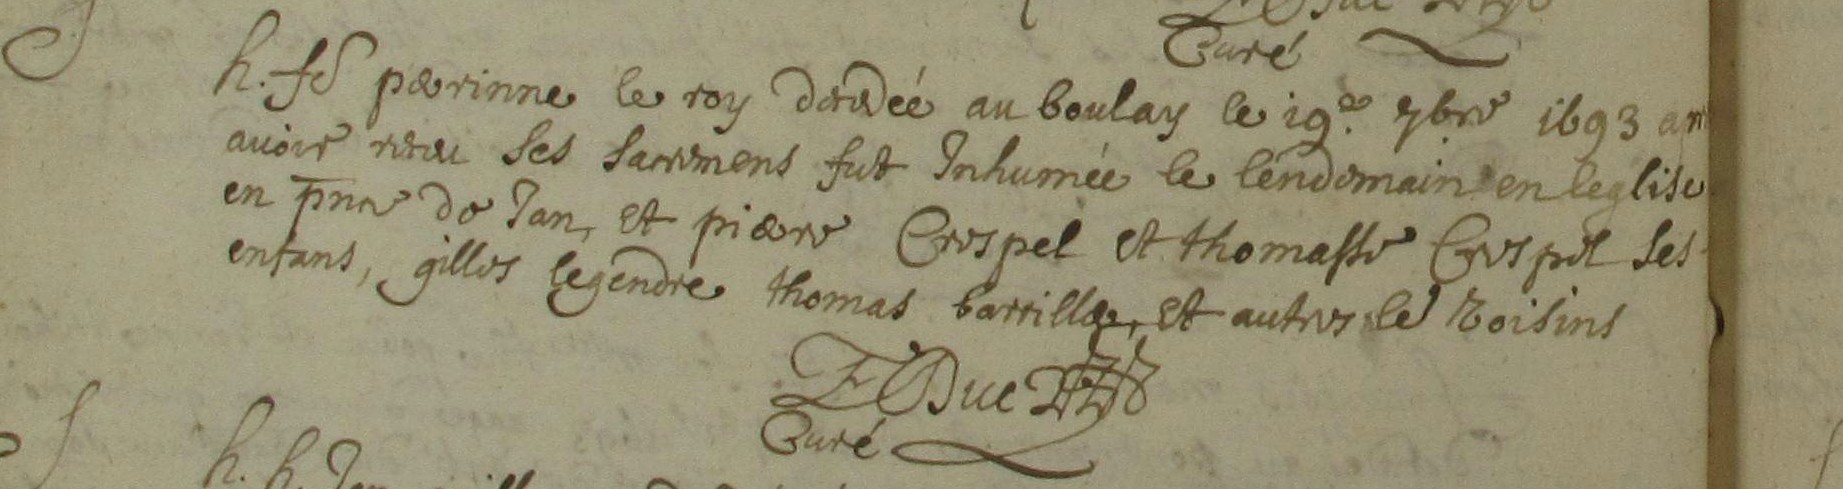 Curé
h. fe perrinne le roy decedée au boulay le 19e 7bre 1693 apr
avoir receu ses sacremens fut Inhumée le lendemain en leglise
en pnce de Jan, et pierre Crespel et thomasse Crespel ses
enfans, gilles legendre thomas barrille, et autres le voisins
F Duc
Curé
h. h. Jan